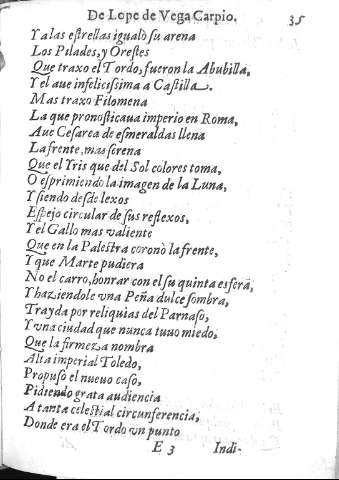 De Lope de Vega Carpio. 35
Y a las estrellas igualò su arena
Los Pilades, y Orestes
Que traxo el Tordo, fueron la Abubilla,
Y el aue infelicissima a Castilla.
Mas traxo Filomena
La que pronosticaua imperio en Roma,
Aue Cesarea de esmeraldas llena
La frente, mas serena
Que el Yris que del Sol colores toma,
O esprimiendo la imagen de la Luna,
Y siendo desde lexos
Espejo circular de sus reflexos,
Y el Gallo mas valiente
Que en la Palestra coronò la frente,
Y que Marte pudiera
No el carro, honrar con el su quinta esfera,
Y haziendole vna Peña dulce sombra,
Trayda por reliquias del Parnaso,
Y vna ciudad que nunca tuuo miedo,
Que la firmeza nombra
Alta imperial Toledo,
Propuso el nueuo caso,
Pidiendo grata audiencia
A tanta celestial circunferencia,
Donde era el Tordo vn punto
E 3 Indi-